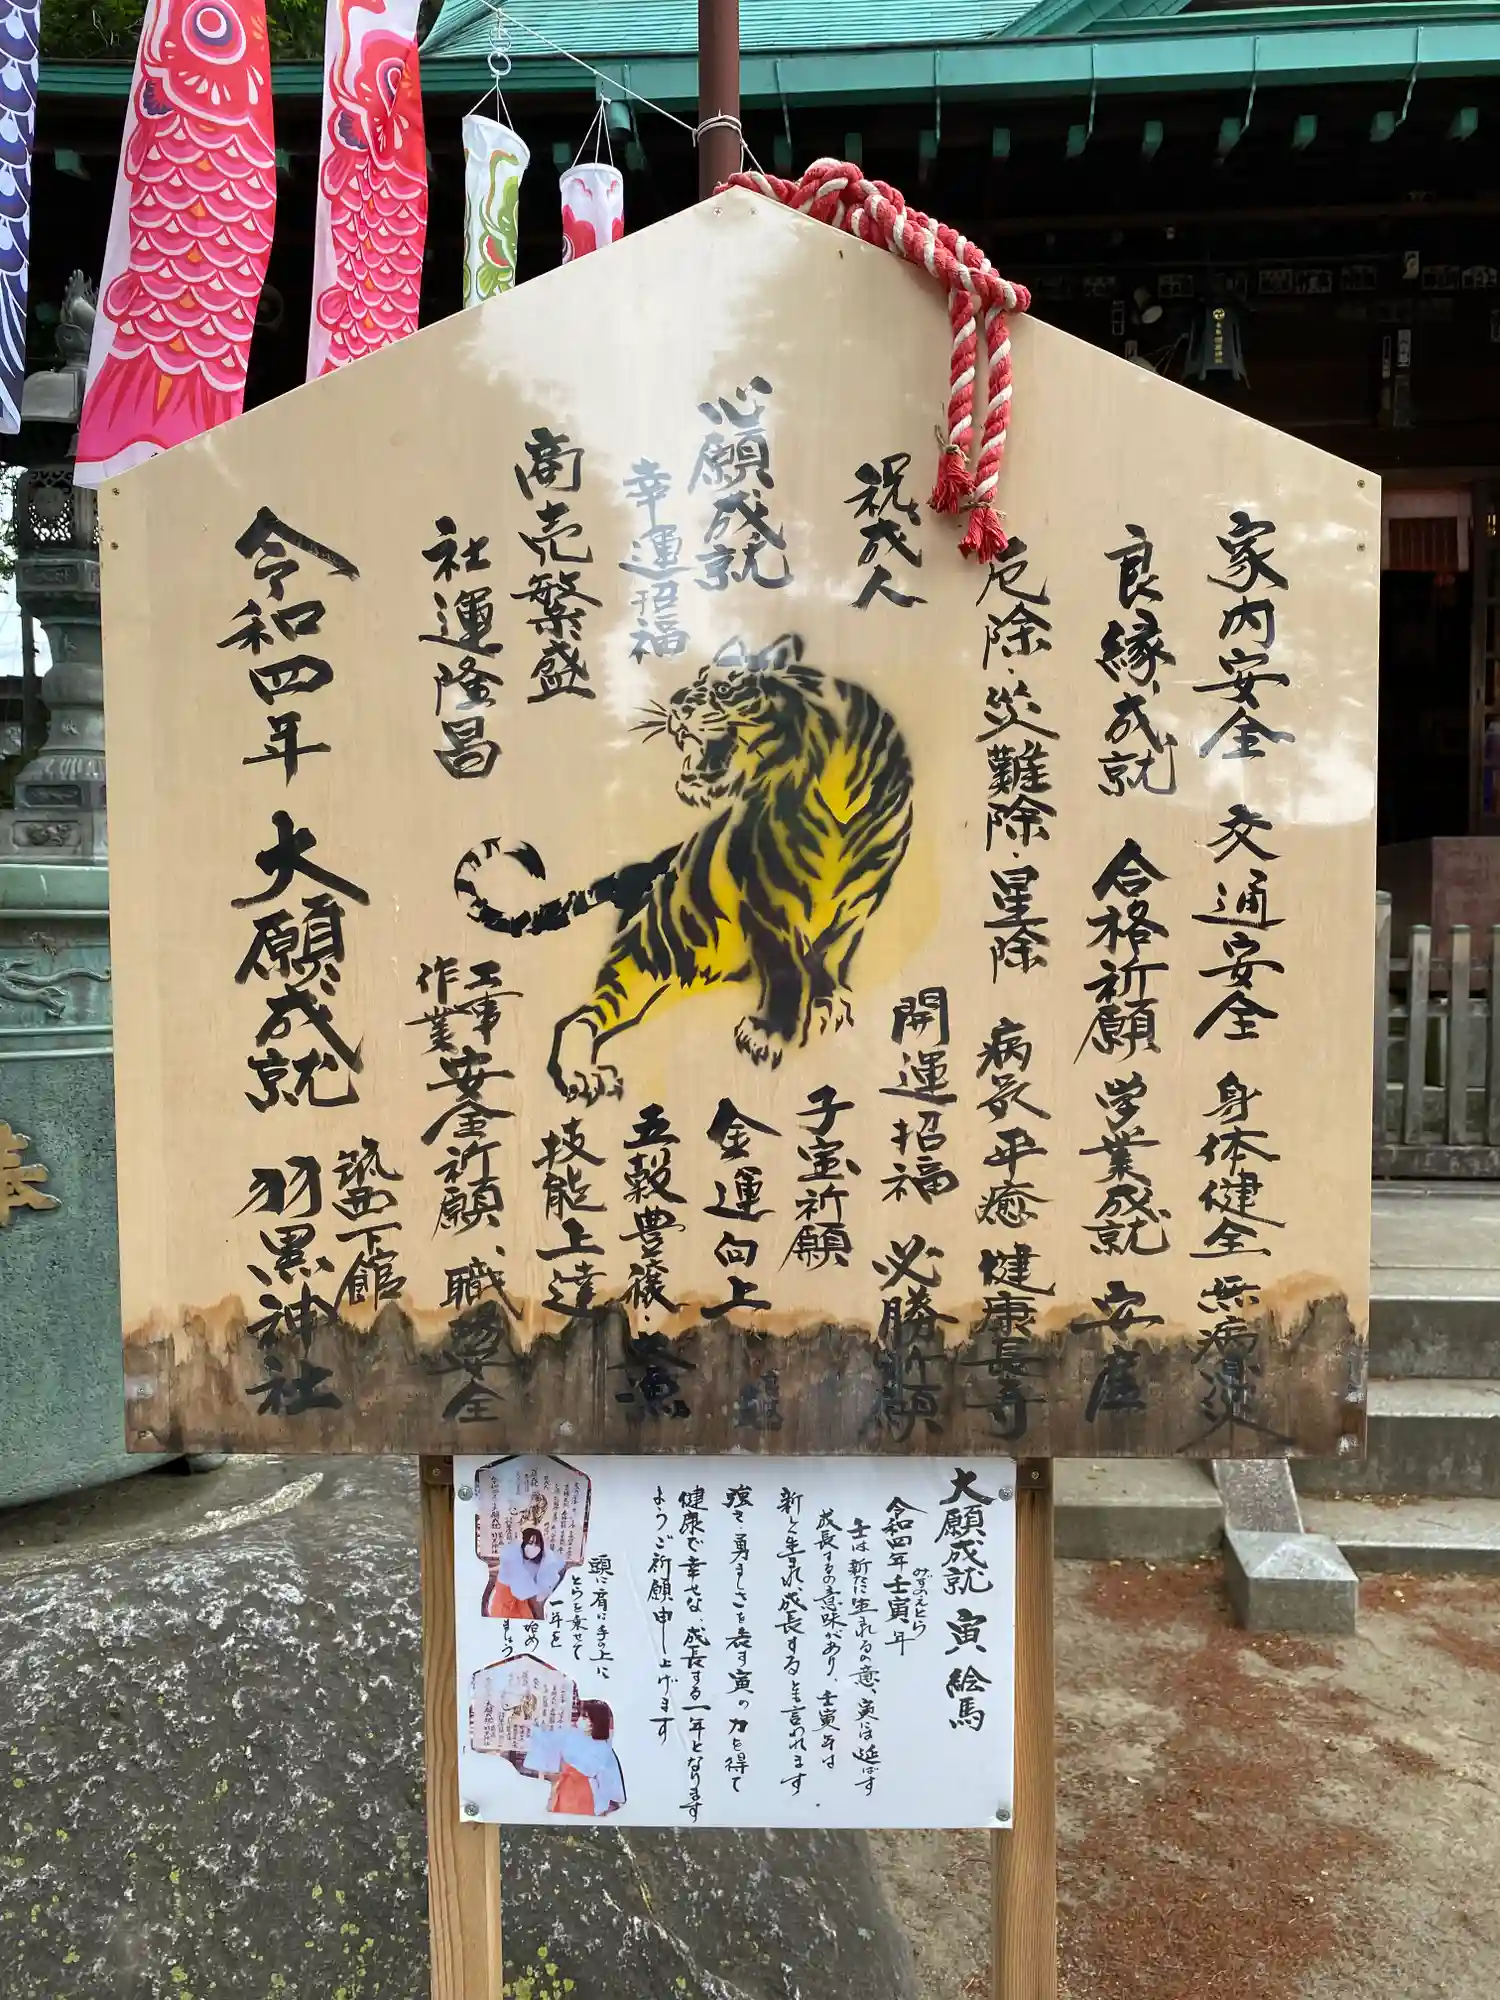 家内安全 交通安全 身体健全 無病息災
良縁成就 合格祈願 学業成就 安産
厄除・災難除・星除 病気平癒 健康長寿
祝成人
開運招福 必勝祈願
子宝祈願
心願成就
金運向上
幸運招福
五穀豊穣・大漁
商売繁盛
技能上達
社運隆昌
工事
作業
安全祈願、職場安全
令和四年 大願成就
筑西下館
羽黒神社
大願成就 寅 絵馬
令和四年壬寅年
みずのえとら
壬は新たに生れるの意、寅は延ばす
成長するの意味があり、壬寅年は
新しく生れ、成長すると言われます
強き・勇ましさを表す寅の力を得て
健康で幸せな、成長する一年となります
ようご祈願申し上げます
頭に肩に手の上に
とらを乗せて
一年を
始め
ましょう